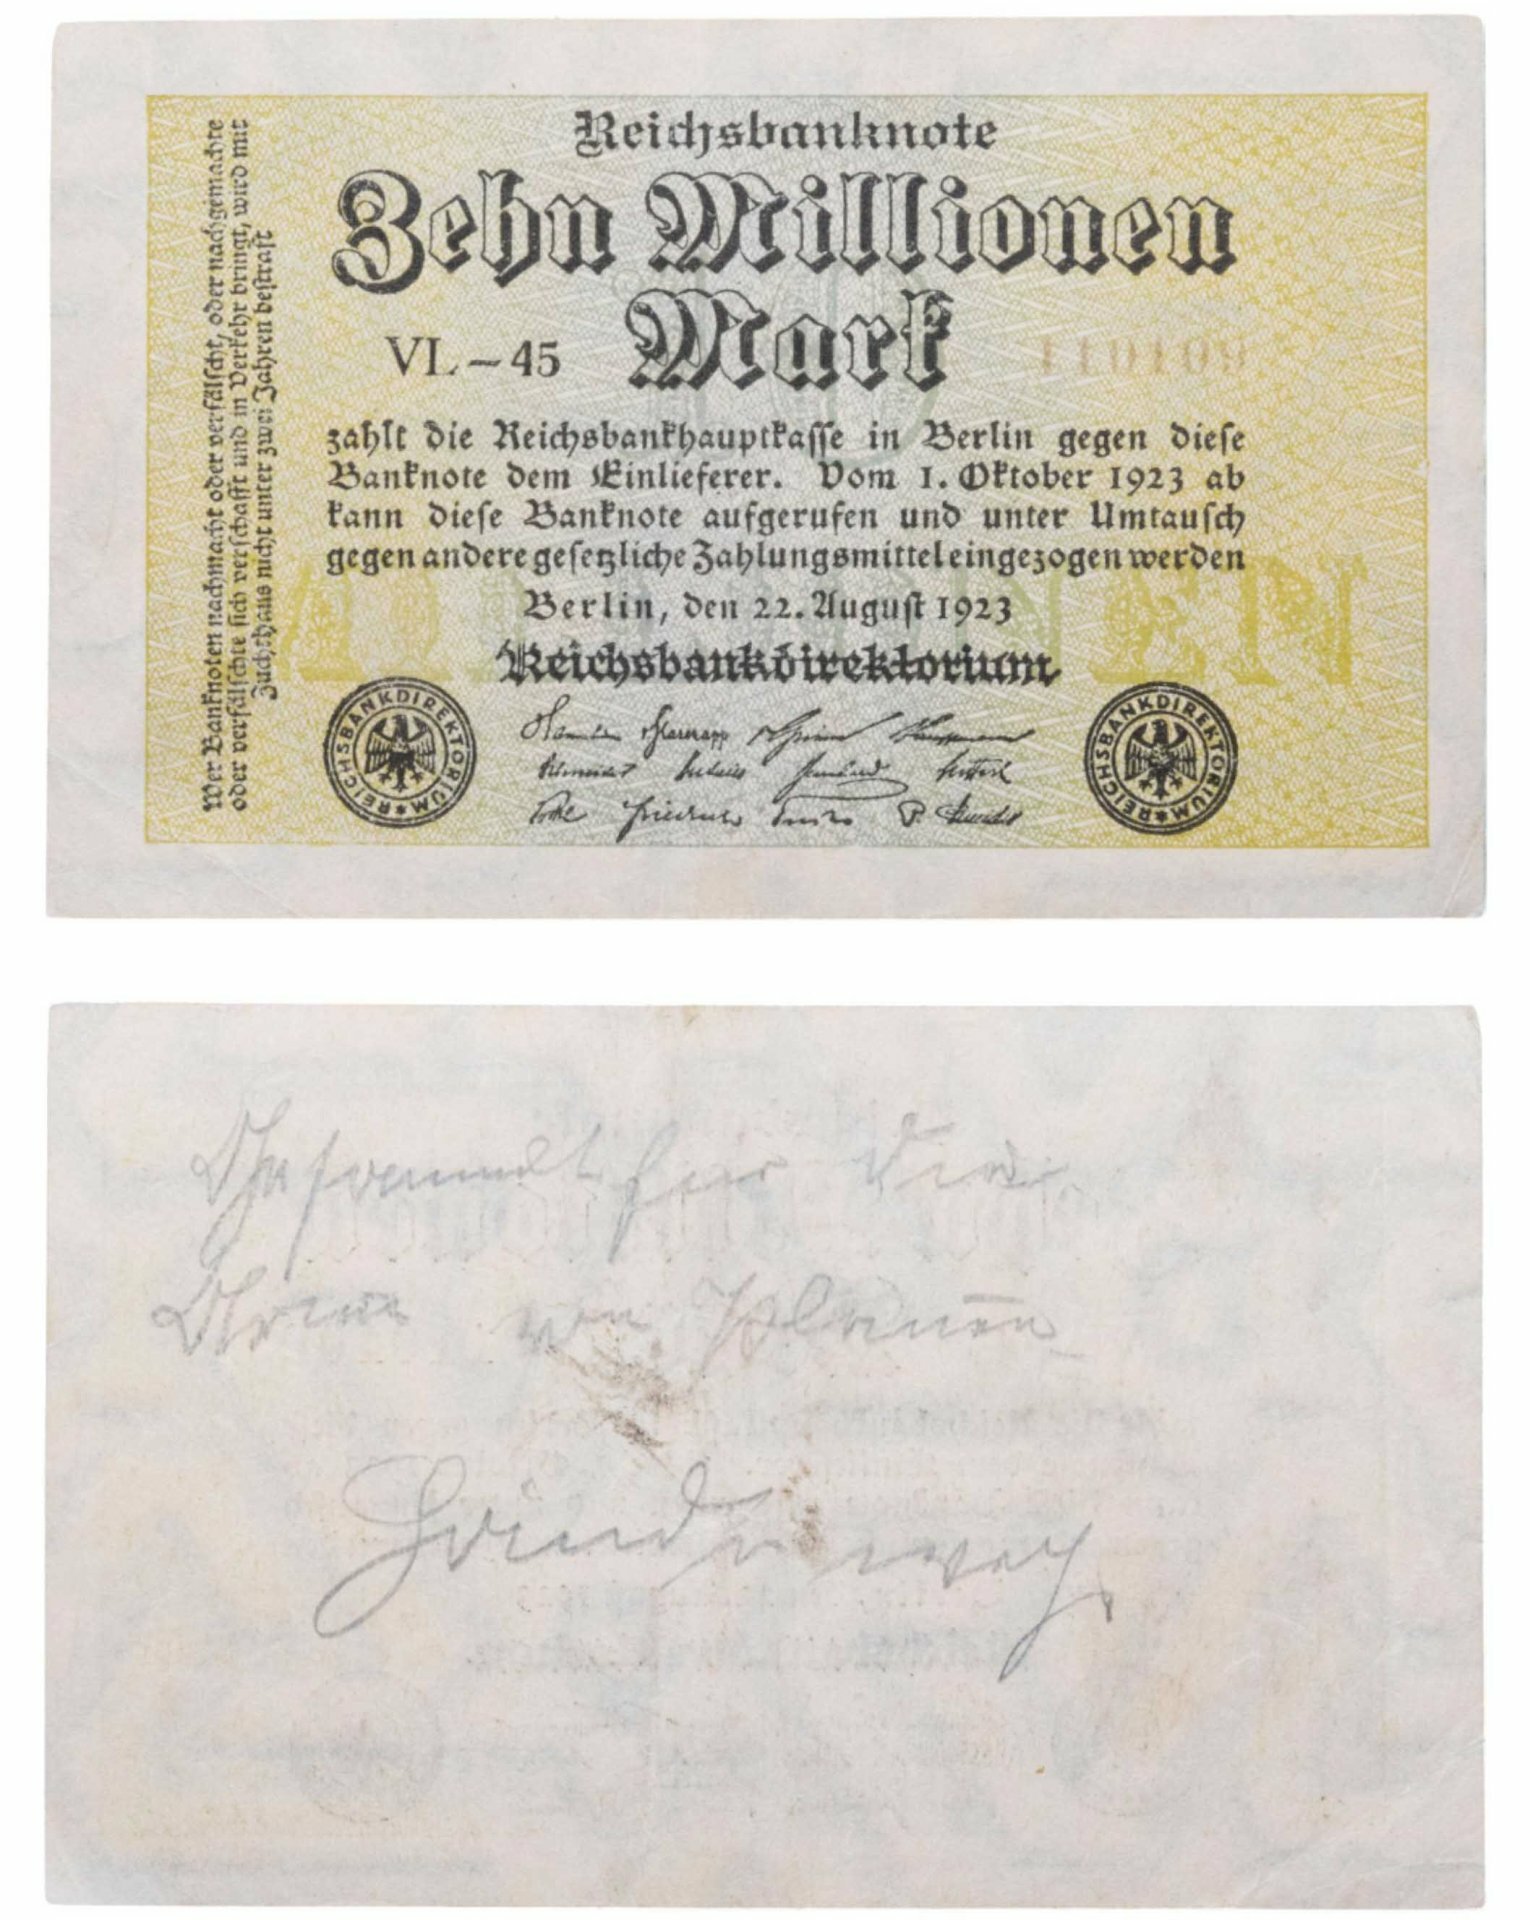 Reichsbanknote
Zehn Millionen
Mark
VL-45
110109
zahlt die Reichsbankhauptkasse in Berlin gegen diese
Banknote dem Einlieferer. Vom 1. Oktober 1923 ab
kann diese Banknote aufgerufen und unter Umtausch
gegen andere gesetzliche Zahlungsmittel eingezogen werden
Berlin, den 22. August 1923
Reichsbankdirektorium
REICHSBANKDIREKTORIUM
REICHSBANKDIREKTORIUM
Wer Banknoten nachmacht oder verfälscht, oder nachgemachte
oder verfälschte sich verschafft und in Verkehr bringt, wird mit
Zuchthaus nicht unter zwei Jahren bestraft
für die
von